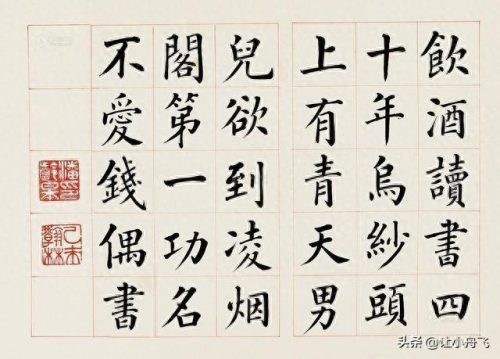 飲酒讀書四
十年烏紗頭
上有青天男
兒欲到凌烟
閣第一功名
不愛錢偶書
頭条 @让小舟飞